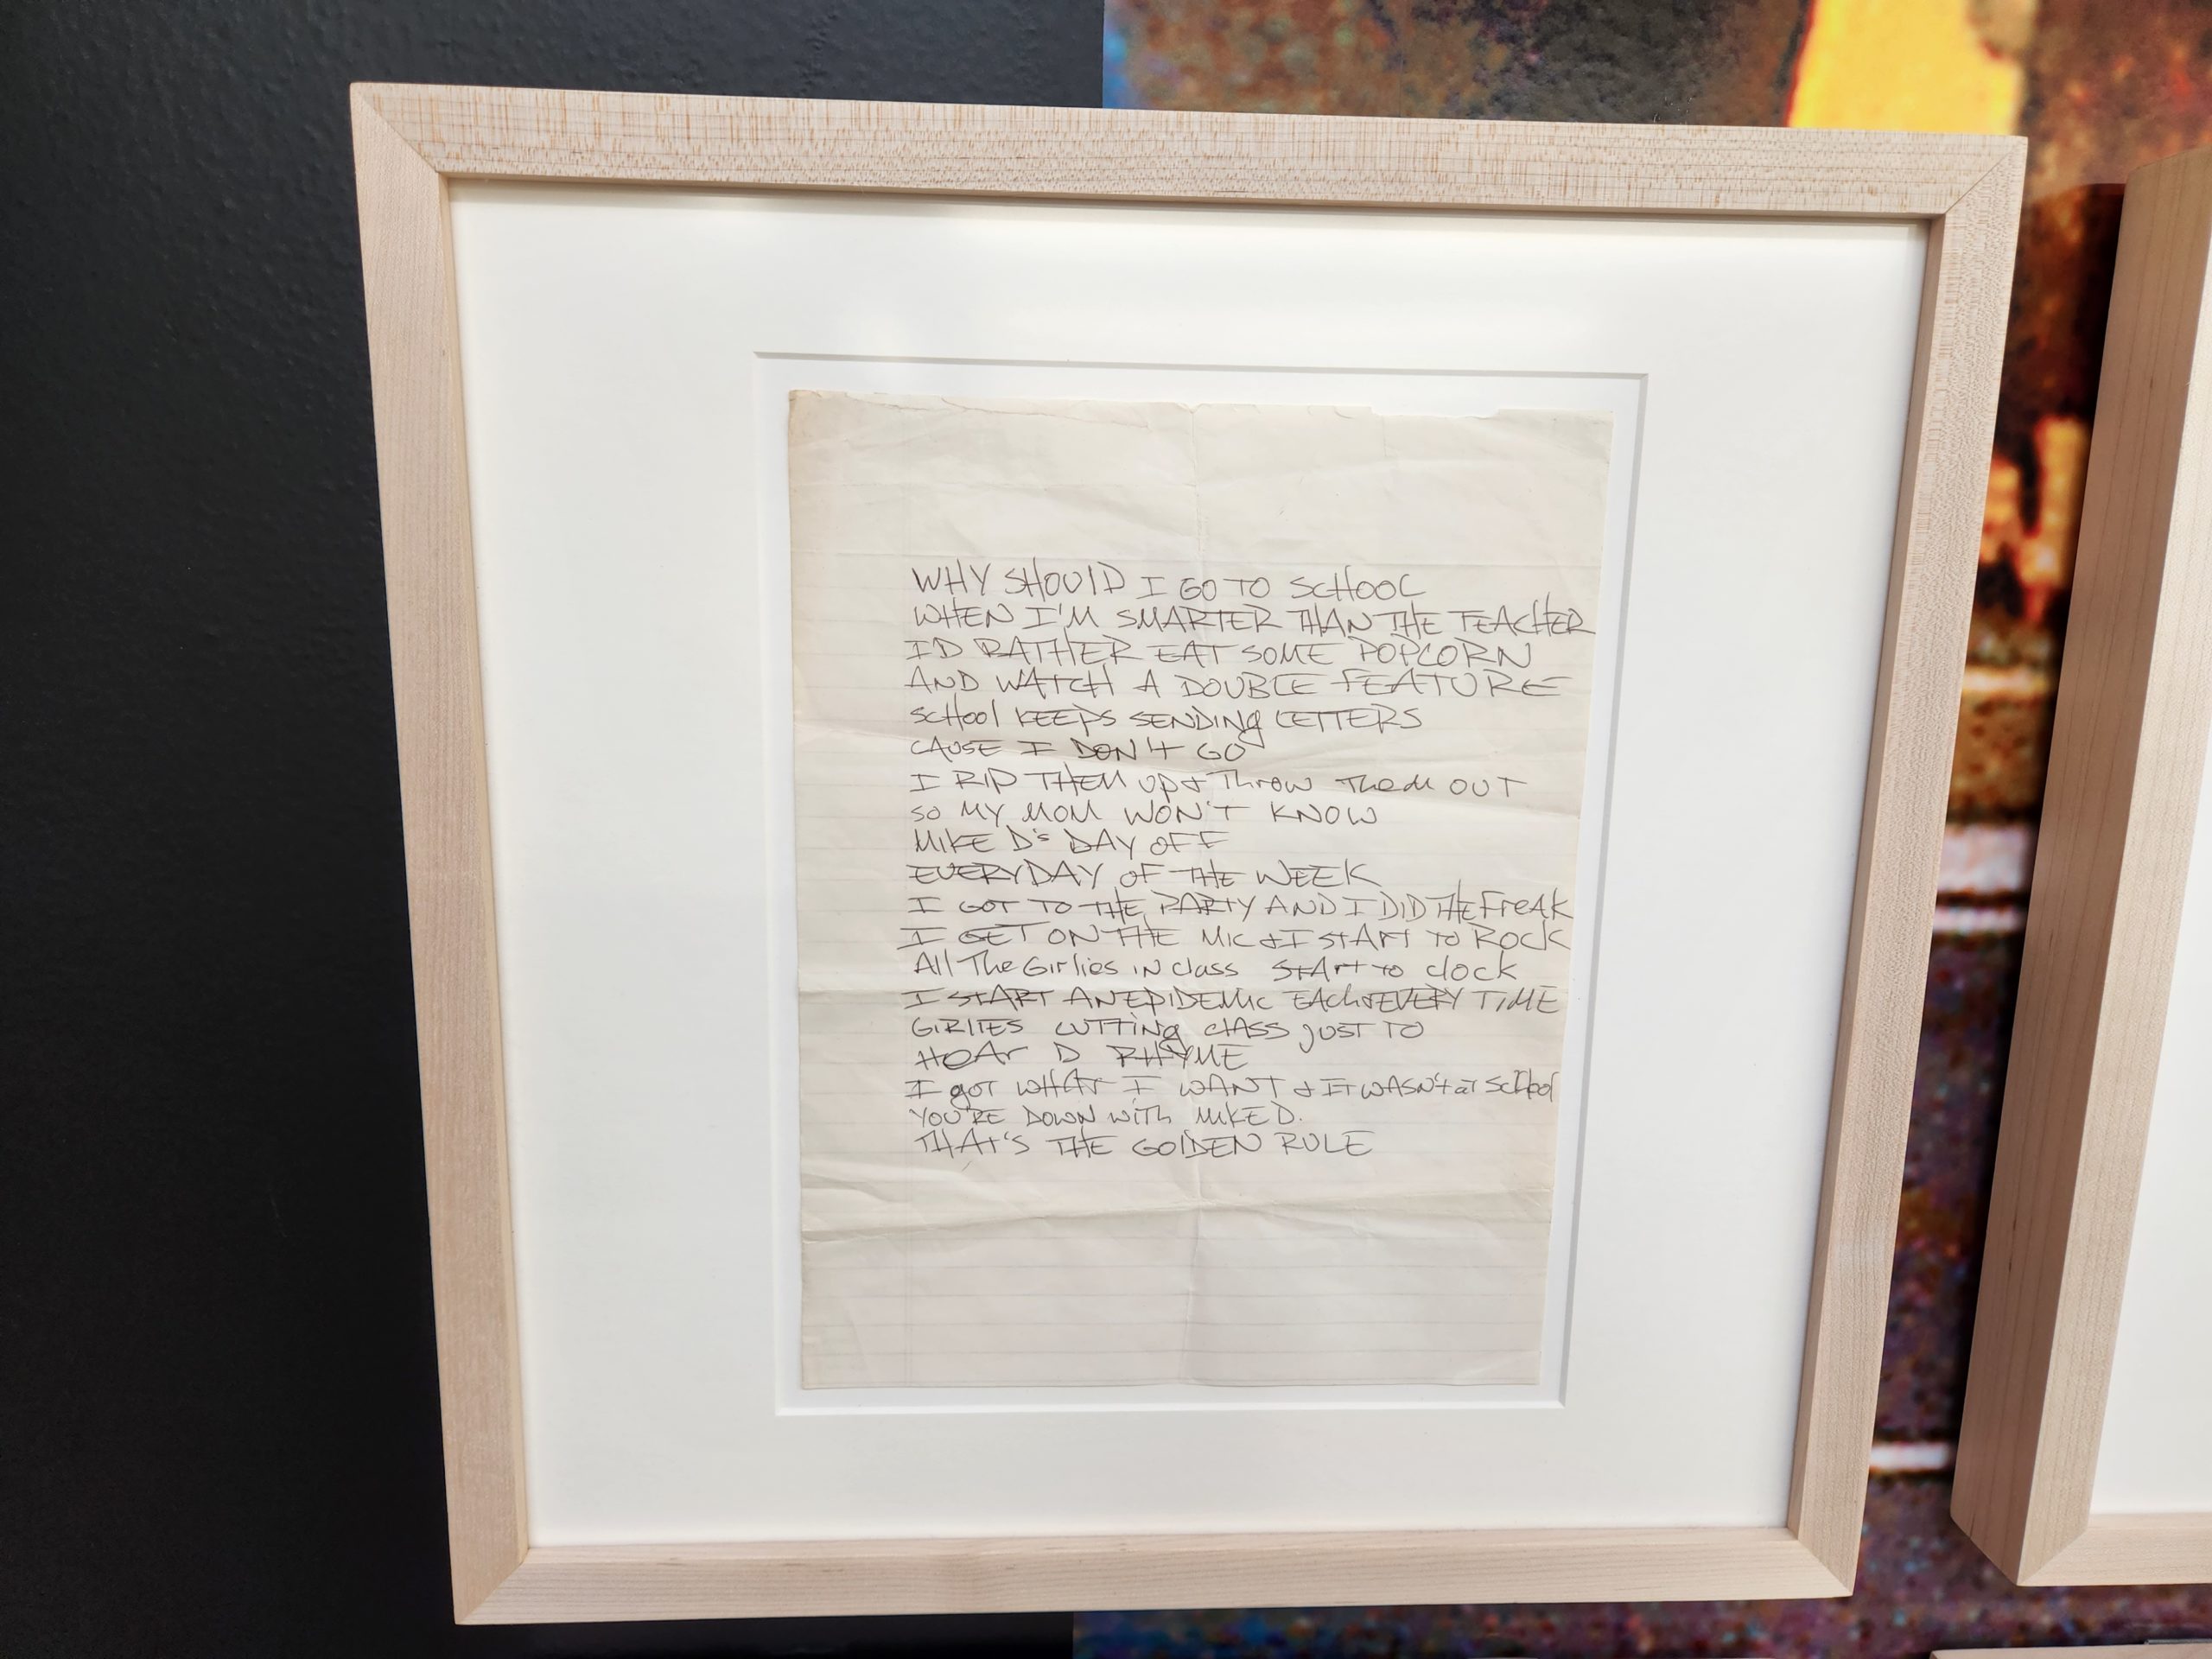 WHY SHOULD I GO TO SCHOOL
WHEN I'M SMARTER THAN THE TEACHER
I'D RATHER EAT SOME POPCORN
AND WATCH A DOUBLE FEATURE
SCHOOL KEEPS SENDING LETTERS
CAUSE I DON'T GO
I RIP THEM UP & THROW THEM OUT
SO MY MOM WON'T KNOW
MIKE D'S DAY OFF
EVERYDAY OF THE WEEK
I GOT TO THE PARTY AND I DID THE FREAK
I GET ON THE MIC & I START TO ROCK
All The Girlies in class START TO clock
I START AN EPIDEMIC EACH & EVERY TIME
GIRLIES CUTTING CLASS JUST TO
HEAR D RHYME
I GOT WHAT I WANT & IT WASN'T AT SCHOOL
YOU'RE DOWN WITH MIKE D.
THAT'S THE GOLDEN RULE